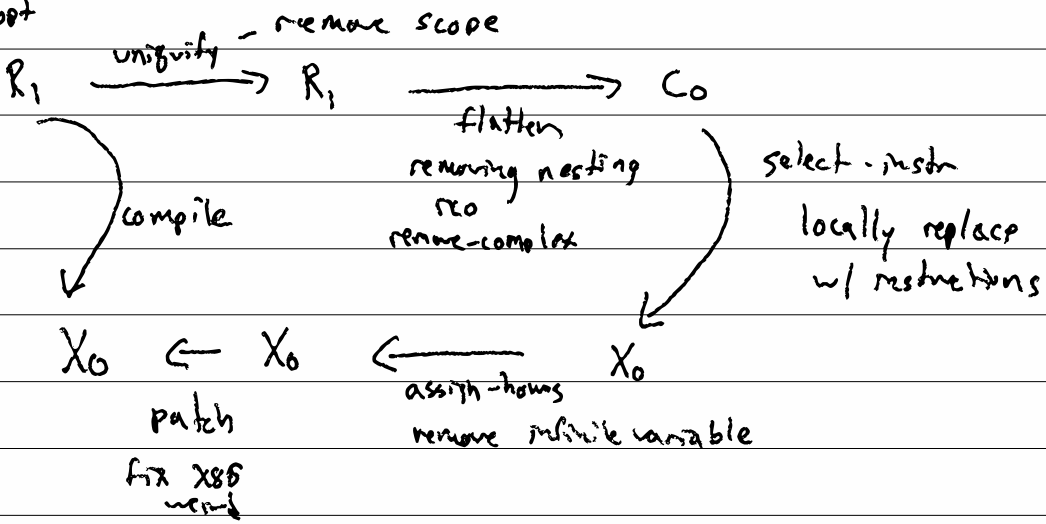 opt
uniquify - remove scope
R₁ → R₁ → C₀
flatten
removing nesting
rco
remove-complex
compile
select-instr
locally replace
w/ instructions
X₀ ← X₀ ← X₀
patch
fix X86
weird
assign-homes
remove infinite variable